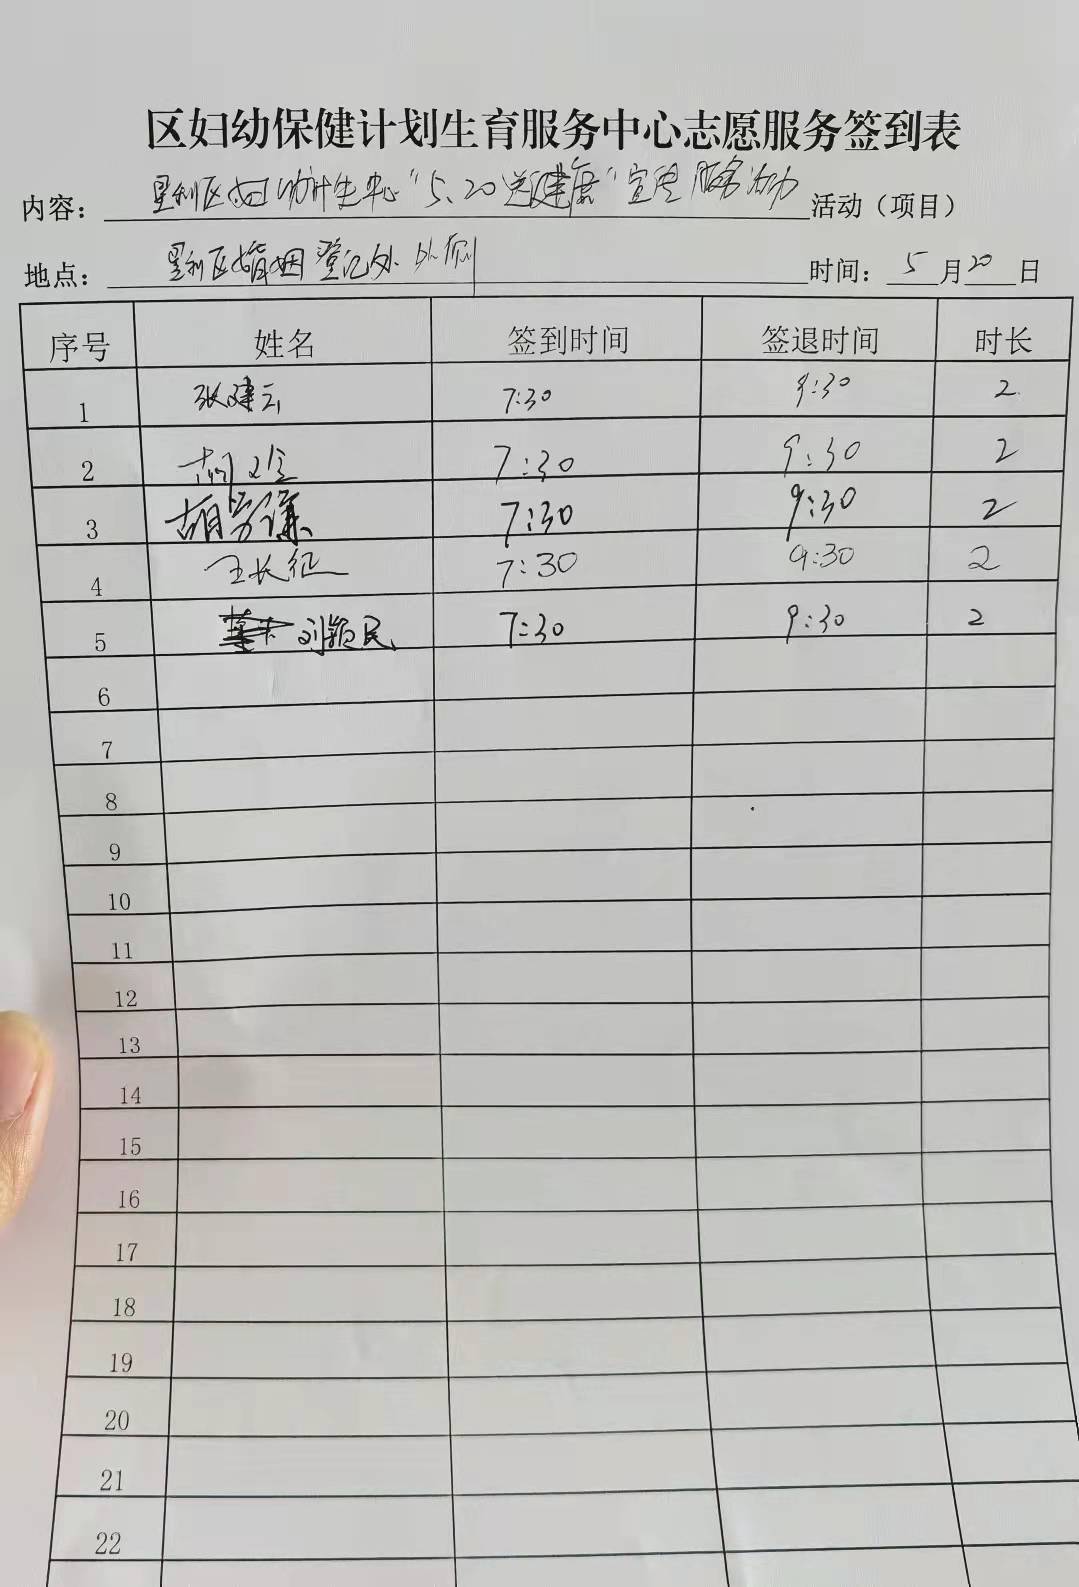 区妇幼保健计划生育服务中心志愿服务签到表
内容： 区妇幼计生中心“5.20送健康”宣传服务活动 活动（项目）
地点： 区婚姻登记处 时间： 5 月 20 日
序号 姓名 签到时间 签退时间 时长
1 张建云 7:30 9:30 2
2 胡 7:30 9:30 2
3 胡 7:30 9:30 2
4 王长征 7:30 9:30 2
5 刘颖民 7:30 9:30 2
6
7
8
9
10
11
12
13
14
15
16
17
18
19
20
21
22